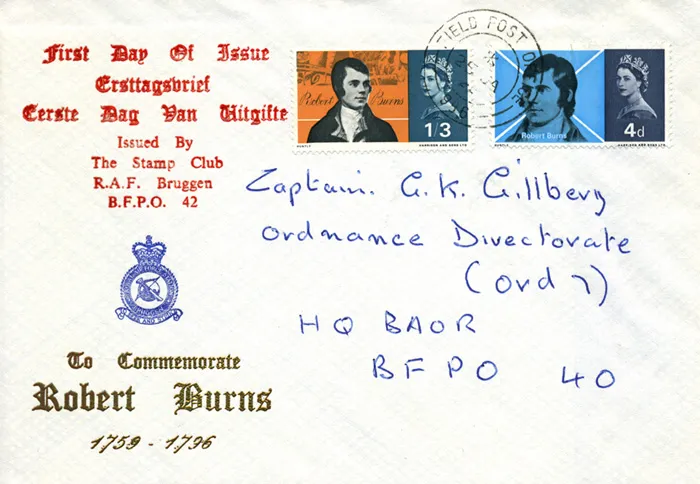 First Day Of Issue
Ersttagsbrief
Eerste Dag Van Uitgifte
Issued By
The Stamp Club
R.A.F. Bruggen
B.F.P.O. 42
FIELD POST
Robert Burns
1/3
HARRISON AND SONS LTD
Robert Burns
4d
HARRISON AND SONS LTD
Captain. G.K. Gillberg
Ordnance Directorate
(Ord 7)
HQ BAOR
BFPO 40
To Commemorate
Robert Burns
1759 - 1796